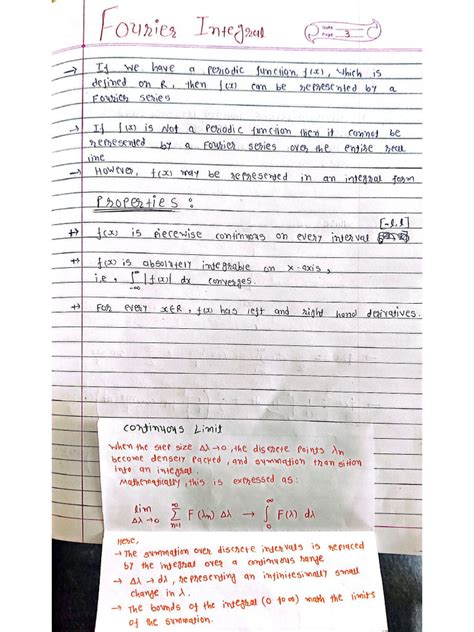 Fourier Integral
Date
Page 3
→ If we have a periodic function, f(x), which is
defined on R, then f(x) can be represented by a
Fourier series
→ If f(x) is Not a Periodic function then it cannot be
represented by a Fourier series over the entire real
line
→ However, f(x) may be represented in an integral form
Properties :
[-l, l]
f(x) is piecewise continuous on every interval
f(x) is absolutely integrable on x-axis,
i.e, ∫_{-∞}^{∞} |f(x)| dx converges.
For every x∈R, f(x) has left and right hand derivatives.
continuous Limit
When the step size Δλ→0, the discrete points λn
become densely packed, and summation transition
into an integral.
Mathematically, this is expressed as:
lim_{Δλ→0} Σ_{n=1}^{∞} F(λn) Δλ → ∫_{0}^{∞} F(λ) dλ
Here,
→ The summation over discrete intervals is replaced
by the integral over a continuous range
→ Δλ → dλ, representing an infinitesimally small
change in λ.
→ The bounds of the integral (0 to ∞) math the limits
of the summation.